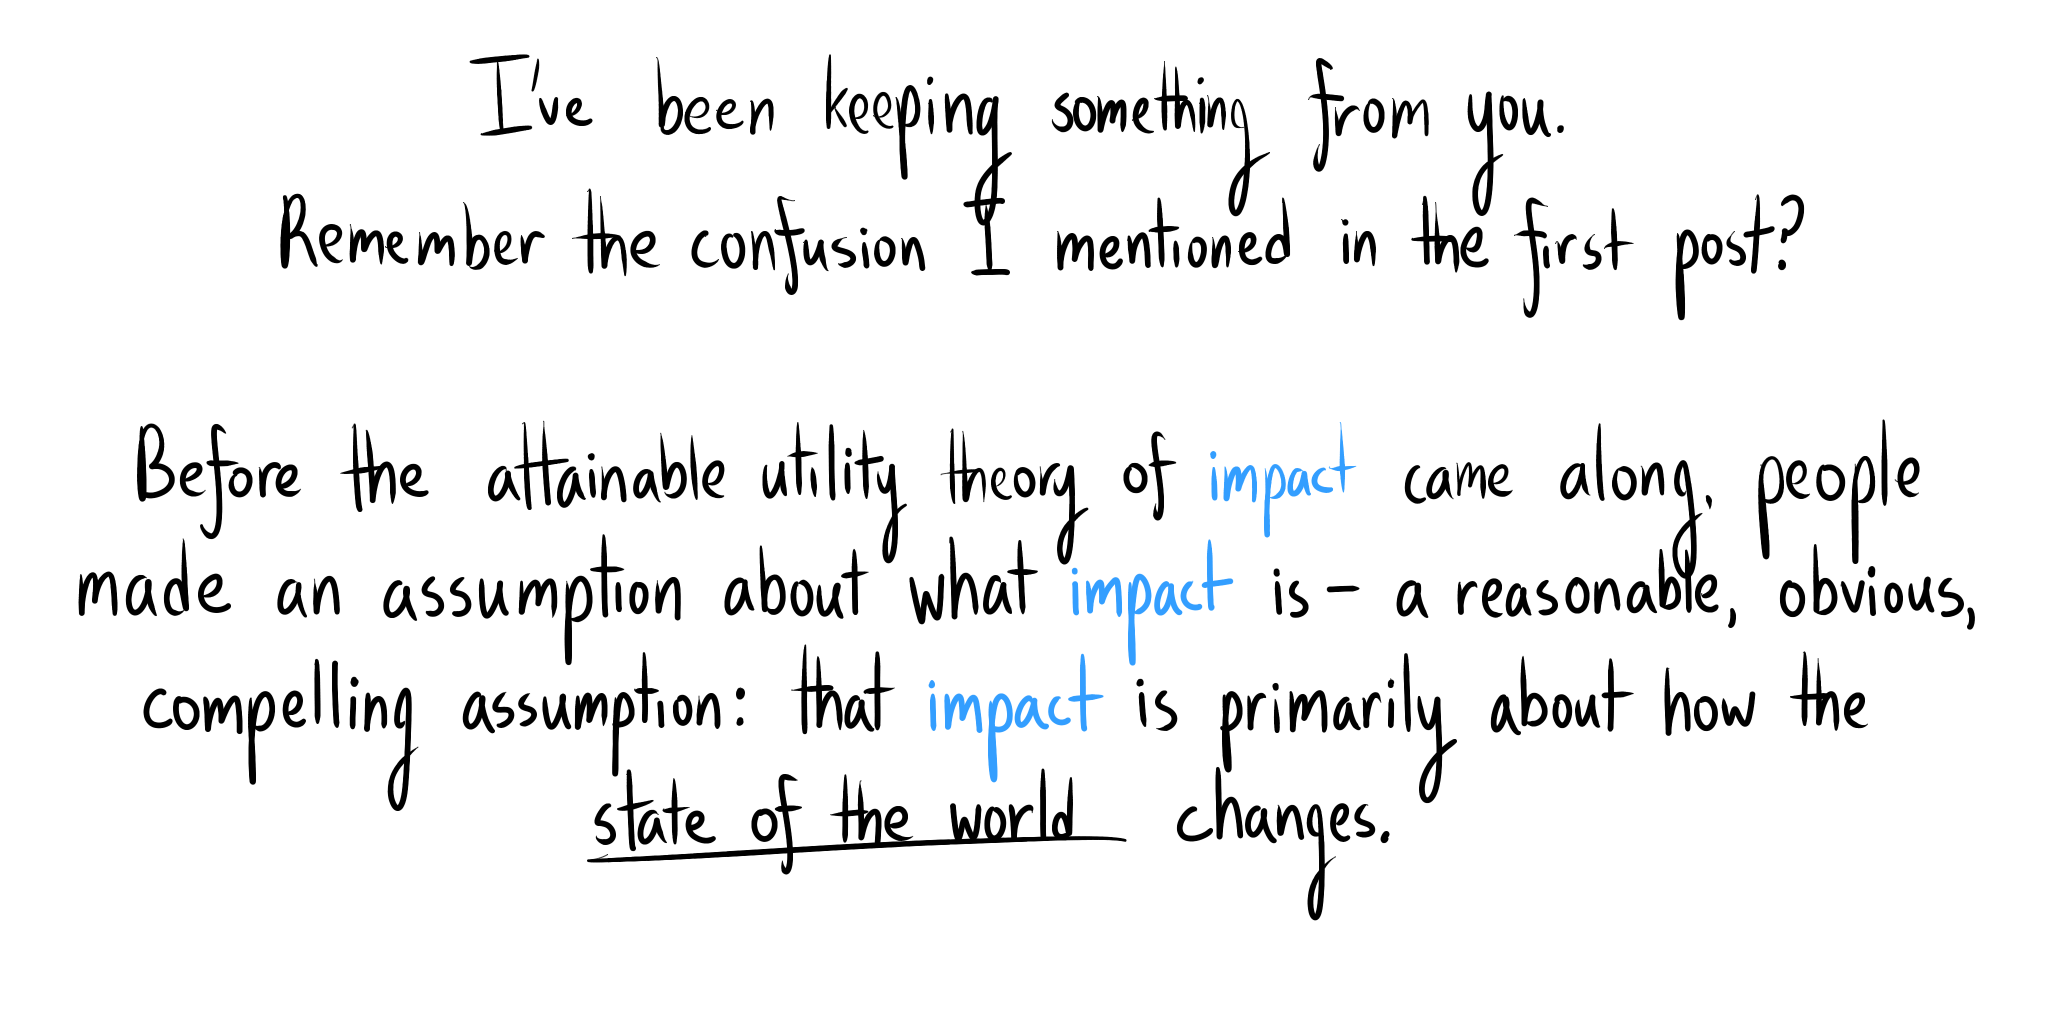 I've been keeping something from you.
Remember the confusion I mentioned in the first post?
Before the attainable utility theory of impact came along, people
made an assumption about what impact is – a reasonable, obvious,
compelling assumption: that impact is primarily about how the
state of the world changes.